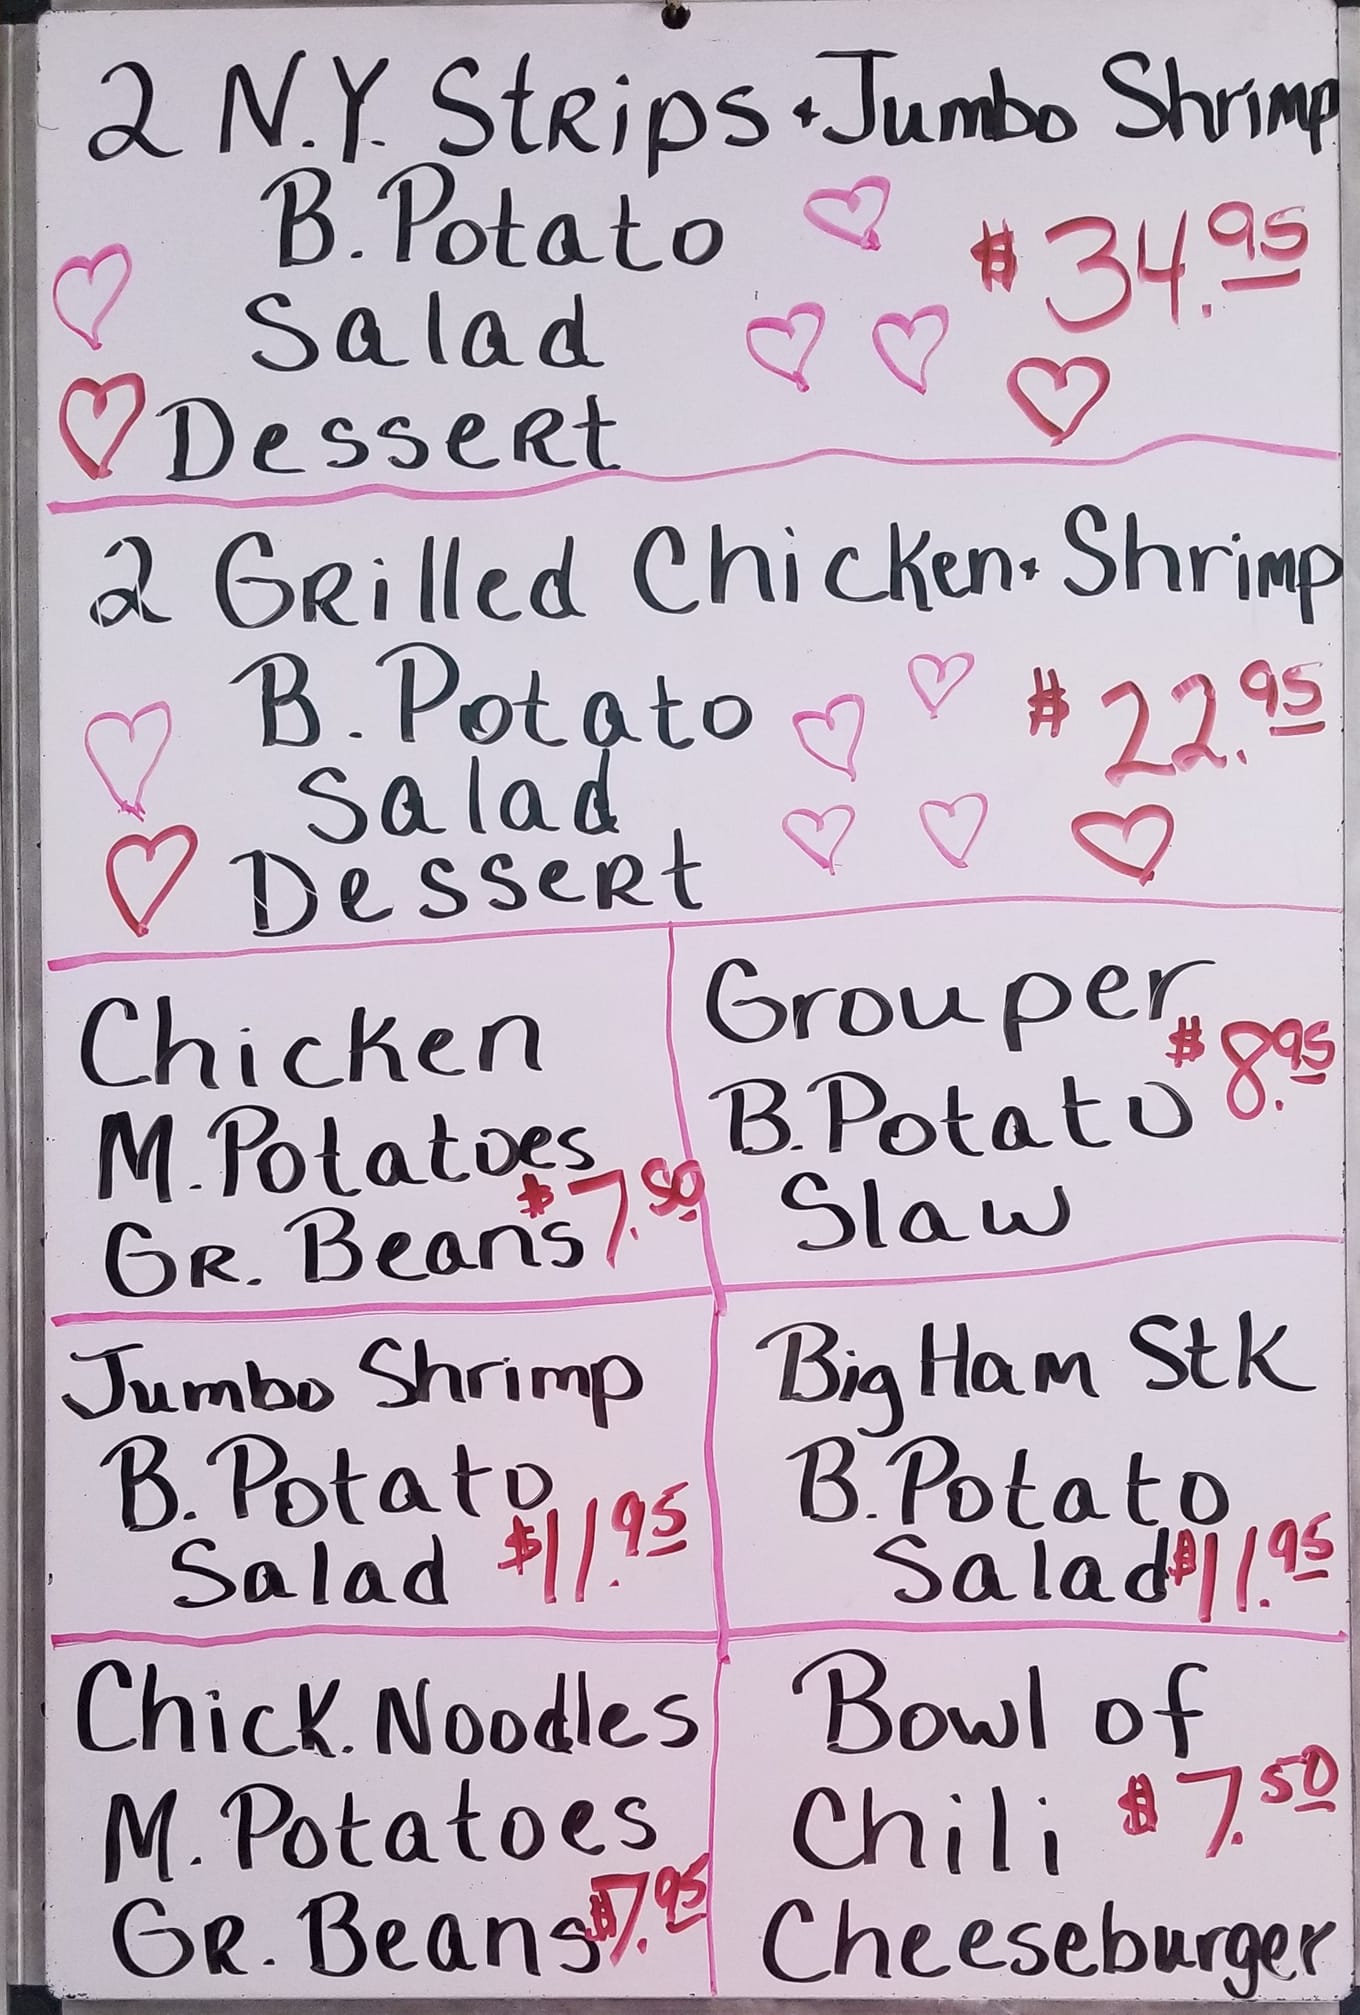 2 N.Y. Strips + Jumbo Shrimp
B. Potato
$34.95
Salad
Dessert
2 Grilled Chicken + Shrimp
B. Potato
$22.95
Salad
Dessert
Chicken
M. Potatoes
Gr. Beans $7.50
Grouper
$8.95
B. Potato
Slaw
Jumbo Shrimp
B. Potato
Salad $11.95
Big Ham Stk
B. Potato
Salad $11.95
Chick. Noodles
M. Potatoes
Gr. Beans $7.95
Bowl of
Chili $7.50
Cheeseburger